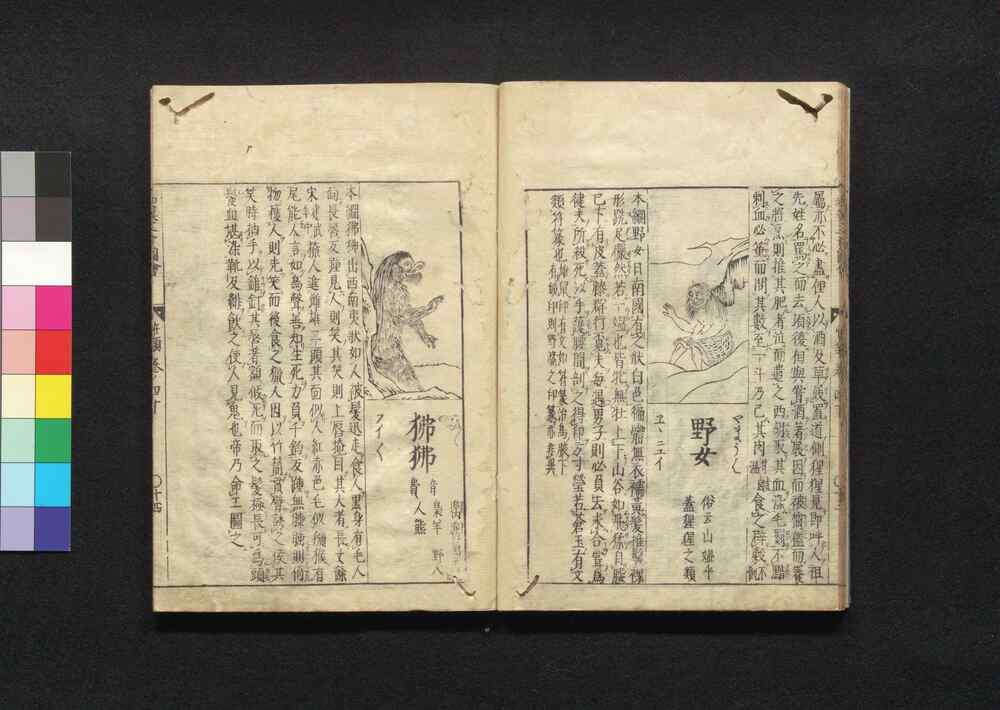 屬亦不必盡俚人以酒及草屐置道側猩猩見即呼人祖
先姓名罵之而去頃後相與嘗酒著屐因而被擒檻而養
之將烹則推其肥者泣而遣之西胡取其血染毛罽不黯
刺血必箠而問其數至一斗乃已其肉食之辟穀不
野女
ヱニユイ
俗云山媼乎
蓋猩猩之類
本綱野女日南國有之狀白色徧體無衣襦黃髮椎髻裸
形跣足儼然若一媼也皆牝無牡上下山谷如飛猱自腰
已下有皮蓋膝群行覓夫每遇男子則必負去求合嘗爲
健夫所殺死以手護腰間剖之得印方寸瑩若蒼玉有文
類符篆也
狒狒
ヒイ
梟羊 野人
人熊
本綱狒狒出西南夷狀如人被髮迅走食人黑身有毛人
面長唇反踵見人則笑其笑則上唇掩目其大者長丈餘
宋建武獠人進雌雄二頭其面似人紅赤色毛似獼猴有
尾能人言如鳥聲善知生死力負千鈞反踵無膝睡則倚
物獲人則先笑而後食之獵人因以竹筒貫臂誘之俟其
笑時抽手以錐釘其唇著額候死而取之髮極長可爲頭
髲血堪染靴及緋飲之使人見鬼也帝乃命工圖之